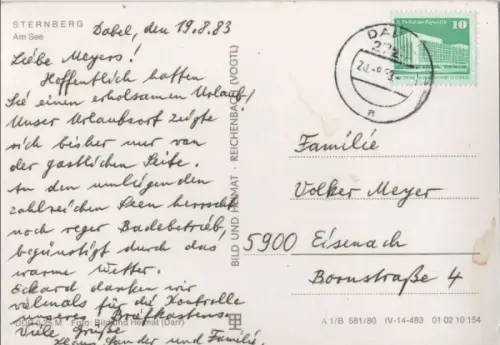 STERNBERG
Am See
Dabel, den 19.8.83
Liebe Meyers!
Hoffentlich hatten
Sie einen erholsamen Urlaub!
Unser Urlaubsort zeigte
sich bisher nur von
der gastlichen Seite.
An den umliegenden
zahlreichen Seen herrscht
noch reger Badebetrieb,
begünstigt durch das
warme Wetter.
Eckard danken wir
vielmals für die Kontrolle
unseres Briefkastens.
Viele Grüße
Sander und Familie.
Foto: Bild und Heimat (Darr)
BILD UND HEIMAT · REICHENBACH (VOGTL)
10
DAB
Familie
Volker Meyer
5900 Eisenach
Bornstraße 4
A 1/B 581/80 IV-14-483 01 02 10 154